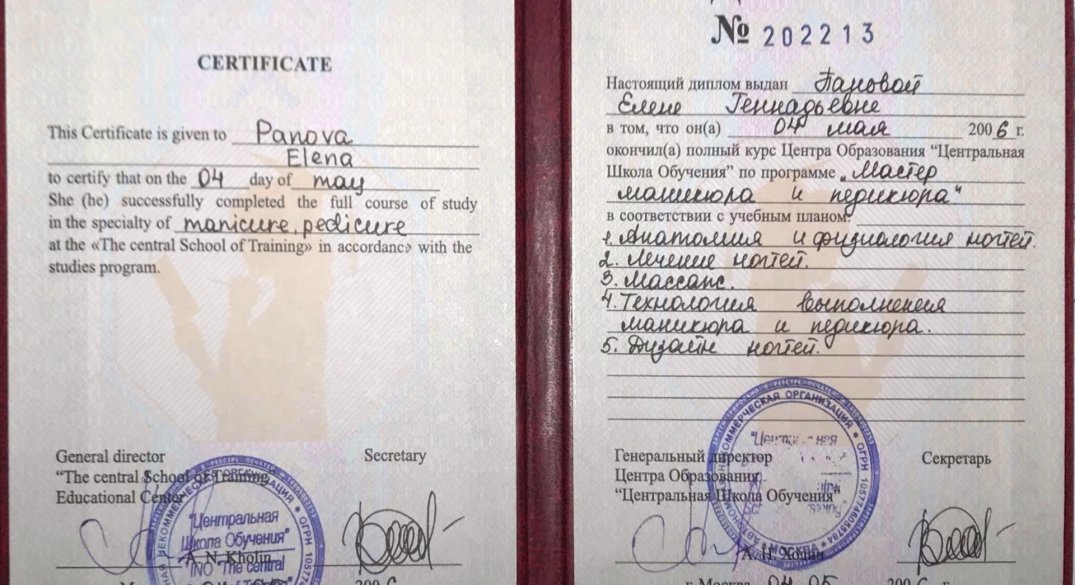 CERTIFICATE
This Certificate is given to Panova
Elena
to certify that on the 04 day of may
She (he) successfully completed the full course of study
in the specialty of manicure, pedicure
at the «The central School of Training» in accordance with the
studies program.
General director
Secretary
"The central School of Training
Educational Center
A. N. Kholin
"Центральная
Школа Обучения"
INO "The central
№ 202213
Настоящий диплом выдан Пановой
Елене Геннадьевне
в том, что он(а) 04 мая 2006 г.
окончил(а) полный курс Центра Образования "Центральная
Школа Обучения" по программе „Мастер
маникюра и педикюра"
в соответствии с учебным планом:
1. Анатомия и физиология ногтей.
2. Лечение ногтей.
3. Массаж.
4. Технология выполнения
маникюра и педикюра.
5. Дизайн ногтей.
Генеральный директор
Секретарь
Центра Образования
"Центральная Школа Обучения"
НЕКОММЕРЧЕСКАЯ ОРГАНИЗАЦИЯ * ОГРН
МОСКВА
А. Н. Холин
г. Москва 04 05 2006 г.